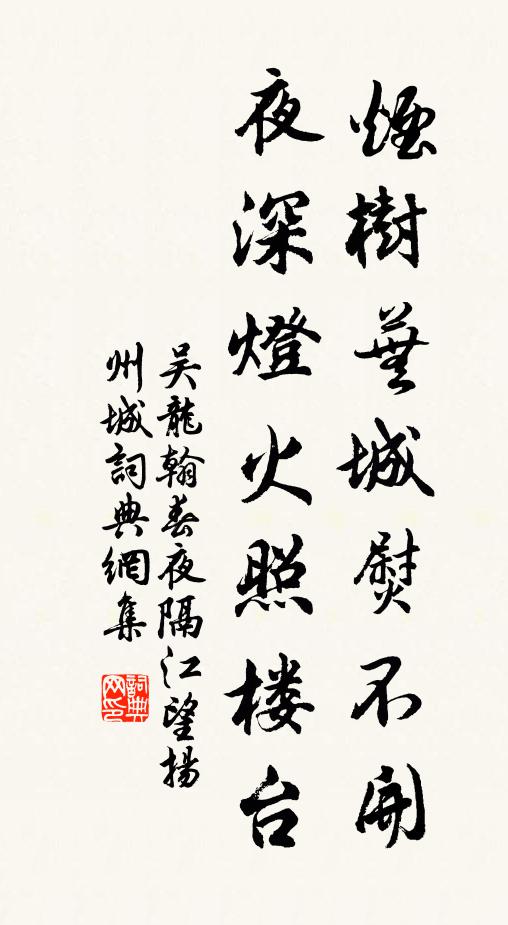 煙樹蕪城熨不開
夜深燈火照楼台
吴龍翰春夜隔江望揚
州城詞典網集
詞典
网印